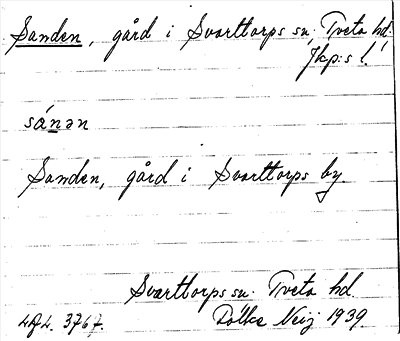 Sanden, gård i Svarttorps sn, Tveta hd.
Jkp:s l.
sánən
Sanden, gård i Svarttorps by.
Svarttorps sn. Tveta hd.
3767. Fölke Neij 1939.